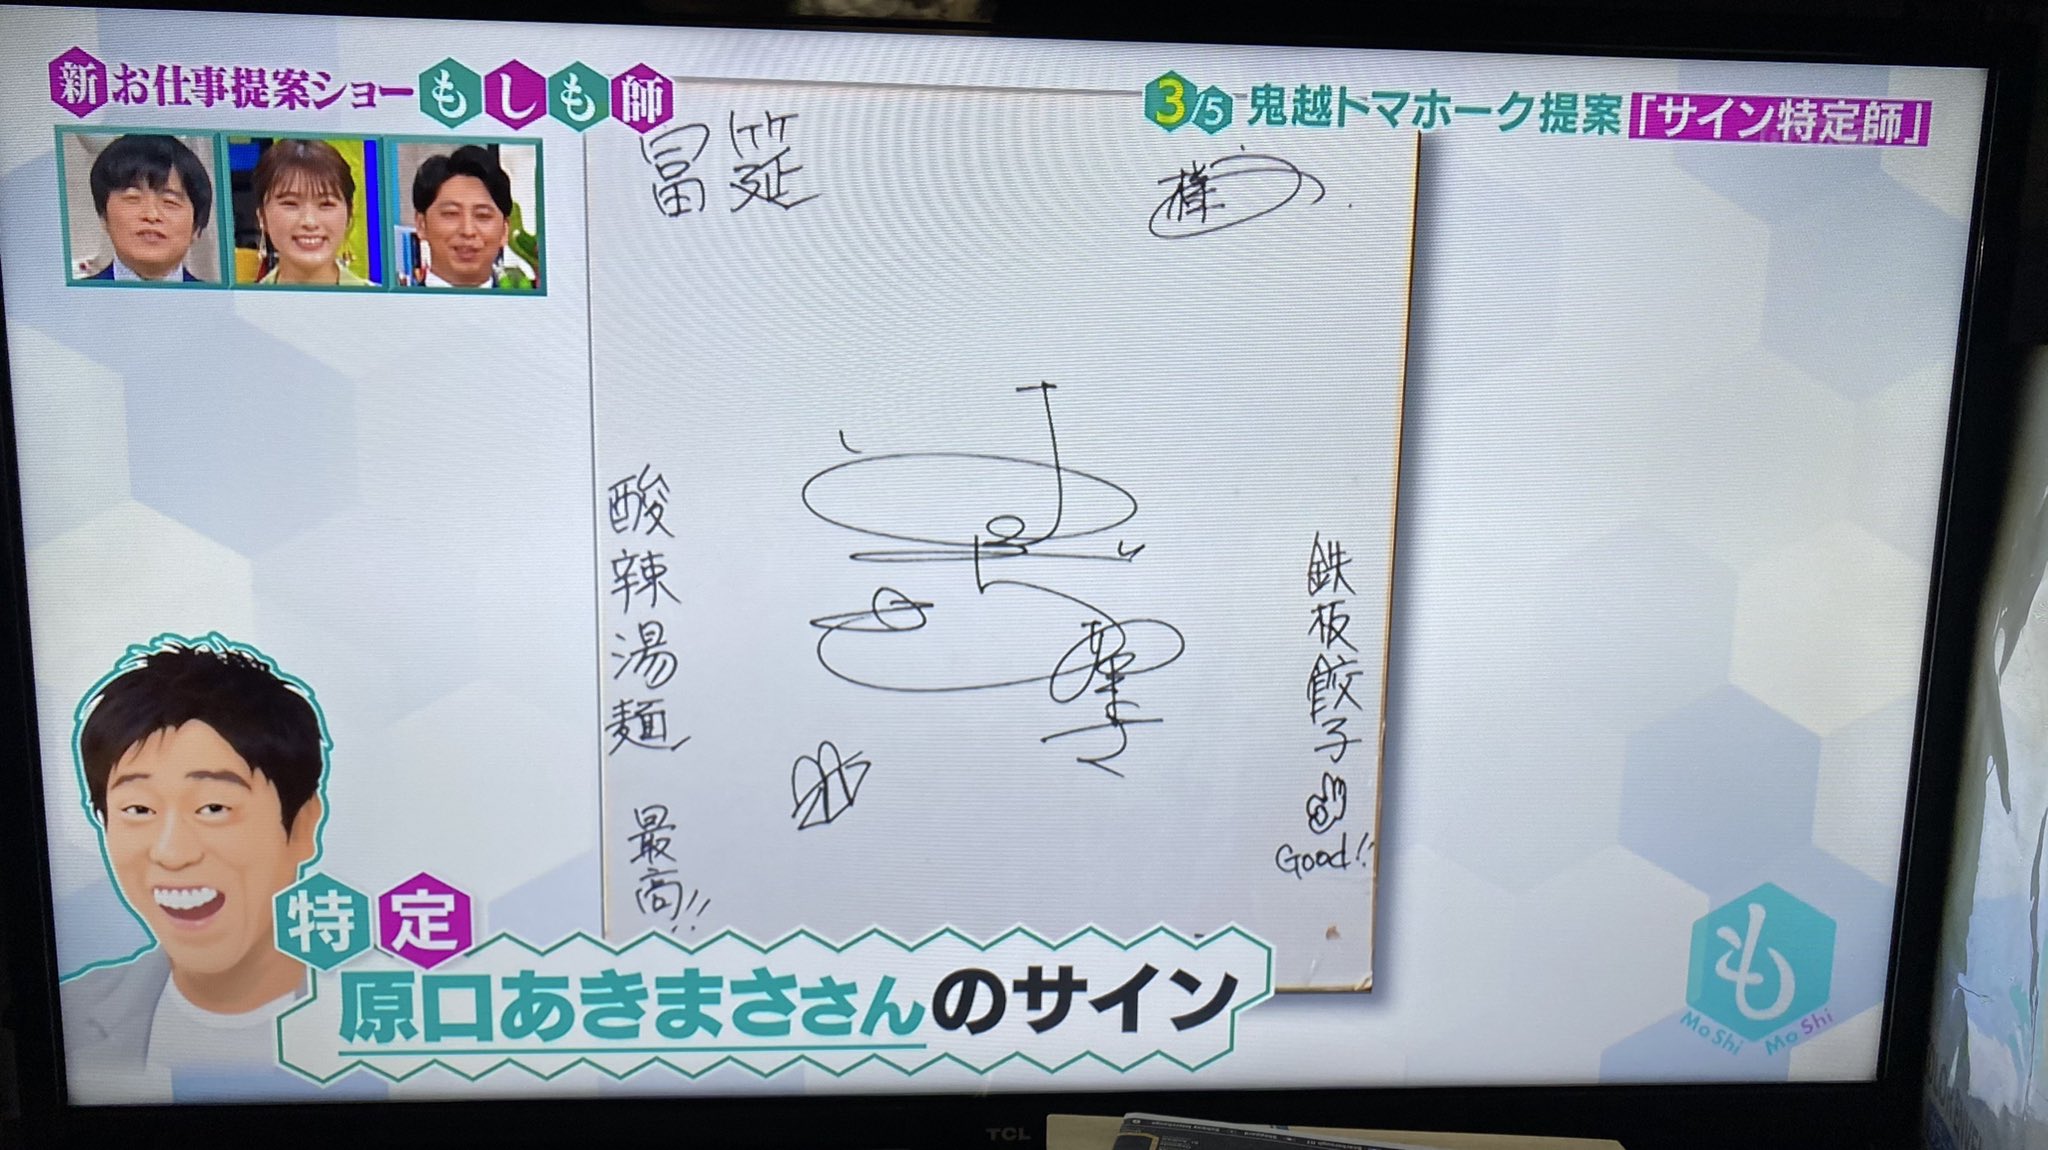 新お仕事提案ショーもしも師
3/5 鬼越トマホーク提案「サイン特定師」
冨筵
様
酸辣湯麺 最高!!
鉄板餃子
Good!!
特定
原口あきまささんのサイン
も
MoShi MoShi
TCL